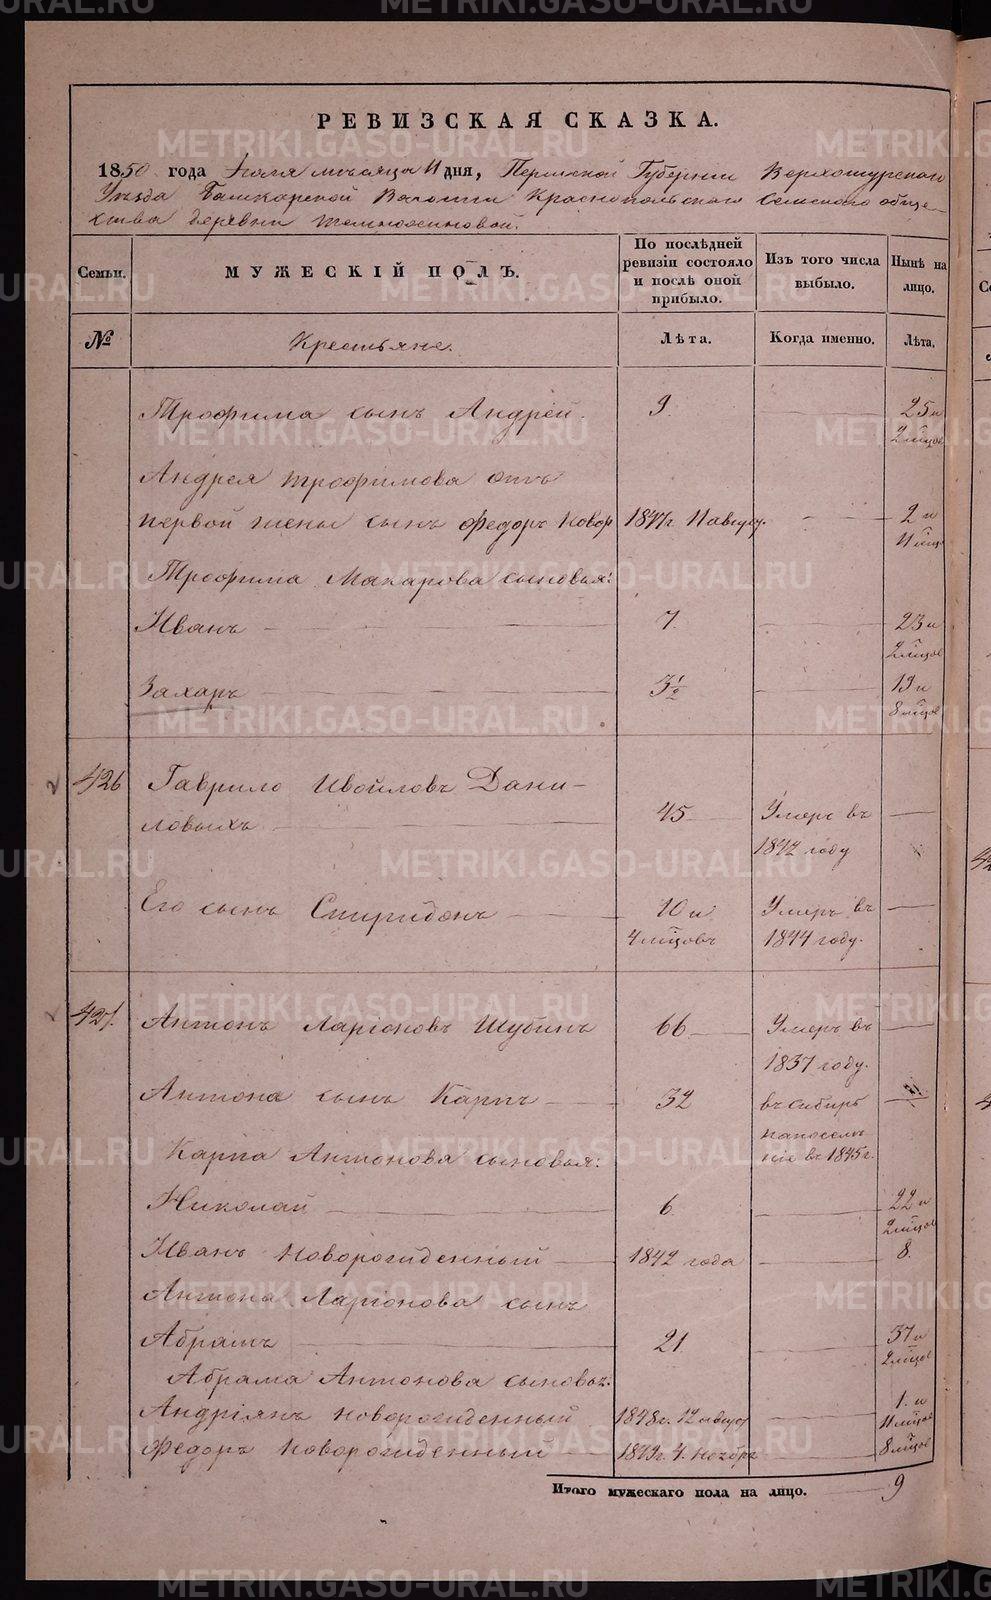 РЕВИЗСКАЯ СКАЗКА.
1850 года Іюля мѣсяца 11 дня, Пермской Губерніи Верхотурскаго
Уѣзда Башкарской Волости Краснопольскаго Сельскаго обще-
ства деревни
Семьи. МУЖЕСКІЙ ПОЛЪ. По послѣдней ревизіи состояло и послѣ оной прибыло. Изъ того числа выбыло. Нынѣ на лицо.
№ Крестьяне. Лѣта. Когда именно. Лѣта.
Трофима сынъ Андрей. 9. 25 и
2 мѣсцов
Андрея Трофимова отъ
первой жены сынъ Федоръ новор 1847г. 11 август. 2 и
11 мѣсц
Трофима Макарова сыновья:
Иванъ 7. 23 и
2 мѣсцов
Захаръ 3½ 19 и
8 мѣсцов
426 Гаврило Ивойловъ Дани-
ловыхъ 45 Умеръ въ
1842 году
Его сынъ Спиридонъ 10 и Умеръ въ
4 мѣсцовъ 1844 году.
427. Антонъ Ларіоновъ Шубинъ 66 Умеръ въ
1837 году.
Антона сынъ Карпъ 32 въ Сибирь
на поселе
Карпа Антонова сыновья: ніе въ 1845 г.
Николай 6. 22 и
2 мѣсцов
Иванъ новорожденный 1842 года 8.
Антона Ларіонова сынъ
Абрамъ 21 37 и
2 мѣсцов
Абрама Антонова сыновья:
Андріянъ новорожденный 1848 г. 12 август 1. и
11 мѣсцов
Федоръ новорожденный 1849г. 4. ноября 8 мѣсцов
Итого мужескаго пола на лицо. 9
METRIKI.GASO-URAL.RU